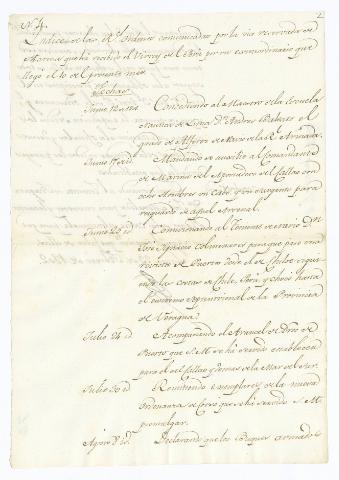 Nº 4.
2
Indice de las Rs. Ordenes comunicadas por la via reservada de
Marina que há recibido el Virrey del Perú por su extraordinario que
llegó el 10 del presente mes
Fechas
Junio 12 de
Concediendo al Maestro de la Escuela
Nautica de Lima Dn. Andres Baleato el
grado de Alferez de Navio de la Rl. Armada.
Junio 17 id.
Mandando se auxilie al Comandante
de Marina del Apostadero del Callao con
ocho Hombres un Cabo y un Sargento para
resguardo de aquel Arsenal.
Junio 28 id
Comisionando al Teniente de Navio Dn.
José Ignacio Colmenares para que
de Puerto de Chiloe
las costas de Chile, Perú, y hasta
el extremo septentrional de la Provincia
de Veragua.
Julio 24 id
Acompañando el Arancel de Dros de
Puerto que S. M. se há servido establecer
para el del Callao y demas de la Mar del Sur.
Julio 30 id
Remitiendo exemplares de la nueva
Ordenanza de Corso que se há servido S. M.
promulgar.
Agosto 8 id.
Declarando que los Buques armados